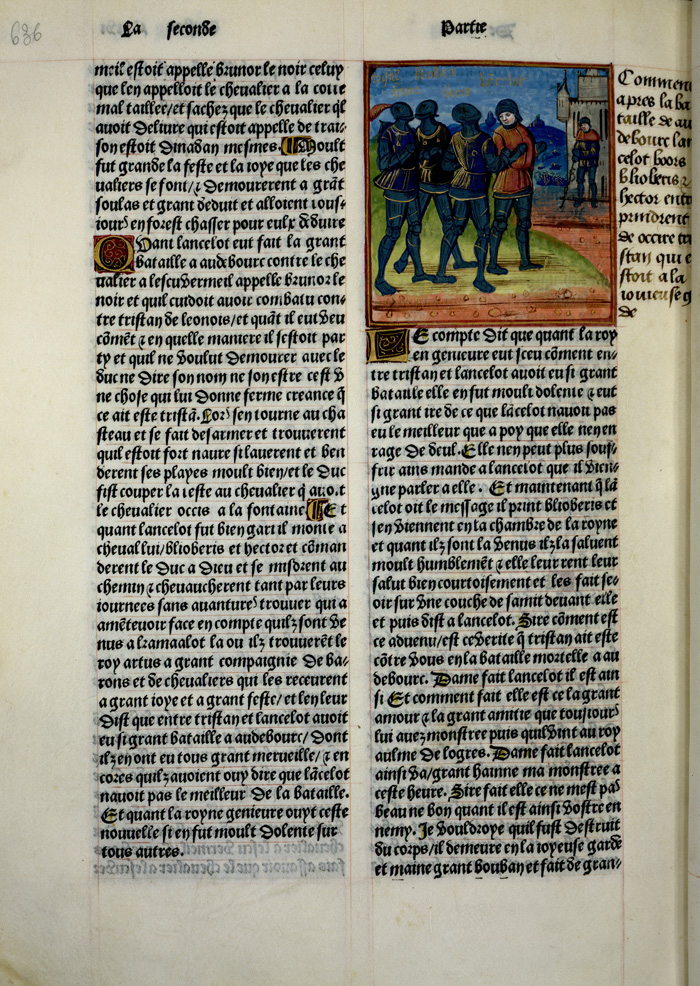 636
La seconde
Partie
meil estoit appelle brunor le noir celuy
que len appelloit le chevalier a la cotte
mal taillee/et sachez que le chevalier ql̃
auoit deliure qui estoit appelle de trai-
son estoit dinadan mesmes. Moult
fut grande la feste et la ioye que les che
ualiers se font/⁊ demourerent a grãt
soulas et grant deduit et alloient tous-
iours en forest chasser pour eulx deduire
Quant lancelot eut fait la grant
bataille a audebourc contre le che
ualier a lescu vermeil appelle brunor le
noir et quil cuidoit auoir combatu con-
tre tristan de leonois/et quãt il eut veu
cõmẽt ⁊ en quelle maniere il sestoit par
ty et quil ne voulut demourer auec le
duc ne dire son nom ne son estre cest v̄
ne chose qui lui donne ferme creance q̃
ce ait este tristã. Lors sen tourne au cha
steau et se fait desarmer et trouuerent
quil estoit fort naure si lauerent et ben
derent ses playes moult bien/et le duc
fist couper la teste au cheualier q̃ auoit
le cheualier occis a la fontaine. Et
quant lancelot fut bien gari il monte a
cheual lui/blioberis et hector et cõman
derent le duc a dieu et se misdrent au
chemin ⁊ cheuaucherent tant par leurs
iournees sans auantures trouuer qui a
amẽteuoir face en compte quilz sont ve
nus a kramaalot la ou ilz trouuerẽt le
roy artus a grant compaignie de ba-
rons et de cheualiers qui les receurent
a grant ioye et a grant feste/ et len leur
dist que entre tristan et lancelot auoit
eu si grant bataille a audebourc/ dont
ilz en ont eu tous grant merueille/ ⁊ en
cores quilz auoient ouy dire que lãcelot
nauoit pas le meilleur de la bataille.
Et quant la royne genieure ouyt ceste
nouuelle si en fut moult dolente sur
tous autres.
Commen
apres la ba
taille de au
debourc lan
celot boors
blioberis ⁊
hector entre
prindrent
de occire tri
stan qui e
stoit a la
ioyeuse g
de
Le compte dit que quant la roy
en genieure eut sceu cõment en-
tre tristan et lancelot auoit eu si grant
bataille elle en fut moult dolente ⁊ eut
si grant ire de ce que lãcelot nauoit pas
eu le meilleur que a poy que elle nen en
rage de deul. Elle nen peut plus souf-
frir ains mande a lancelot que il vien-
gne parler a elle. Et maintenant q̃ lã
celot oit le message il print blioberis et
sen viennent en la chambre de la royne
et quant ilz sont la venus ilz la saluent
moult humblemẽt ⁊ elle leur rent leur
salut bien courtoisement et les fait se-
oir sur vne couche de samit deuant elle
et puis dist a lancelot. Sire cõment est
ce aduenu/est ce verite q̃ tristan ait este
cõtre vous en la bataille mortelle a au
debourc. Dame fait lancelot il est ain
si Et comment fait elle est ce la grant
amour ⁊ la grant amitie que toujours
lui auez monstree puis quil vint au roy
aulme de logres. Dame fait lancelot
ainsi va/grant hainne ma monstree a
ceste heure. Sire fait elle ce ne mest pas
beau ne bon quant il est ainsi vostre en
nemy. Je vouldroye quil fust destruit
du corps/il demeure en la ioyeuse garde
et maine grant bouban et fait de gran-